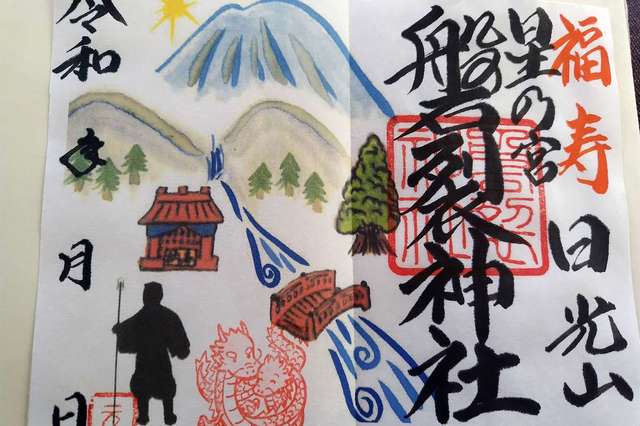 福寿 日光山
星の宮
磐裂神社
令和 年 月 日